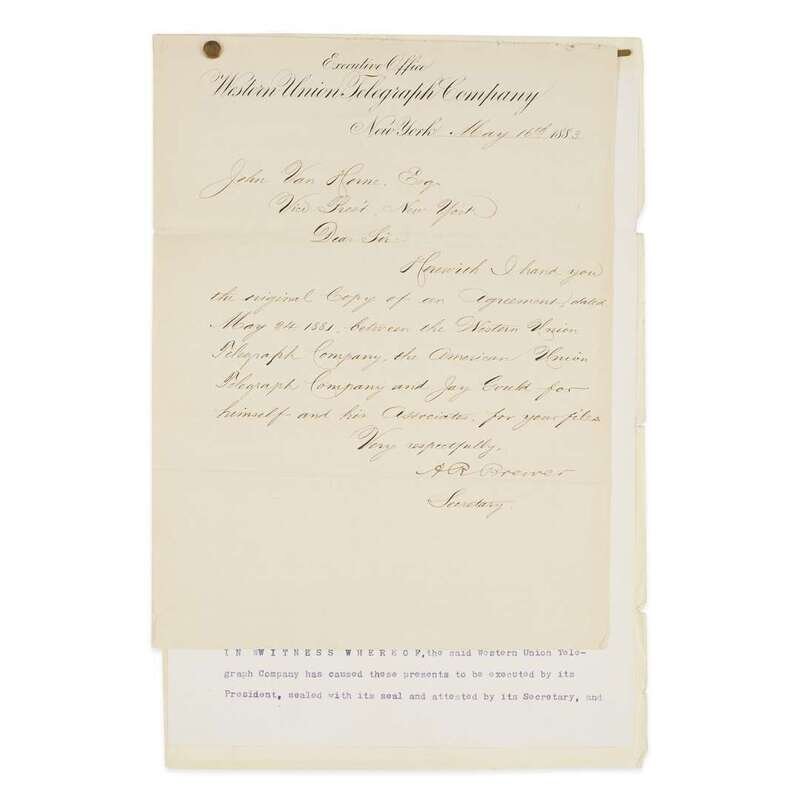 Executive Office
Western Union Telegraph Company
New York May 16th 1883
John Van Horne, Esq.
Vice Prest. New York
Dear Sir:
Herewith I hand you
the original Copy of an Agreement, dated
May 24 1881, between the Western Union
Telegraph Company, the American Union
Telegraph Company and Jay Gould for
himself and his Associates, for your files.
Very respectfully,
A R Brewer
Secretary.
IN WITNESS WHEREOF, the said Western Union Tele-
graph Company has caused these presents to be executed by its
President, sealed with its seal and attested by its Secretary, and